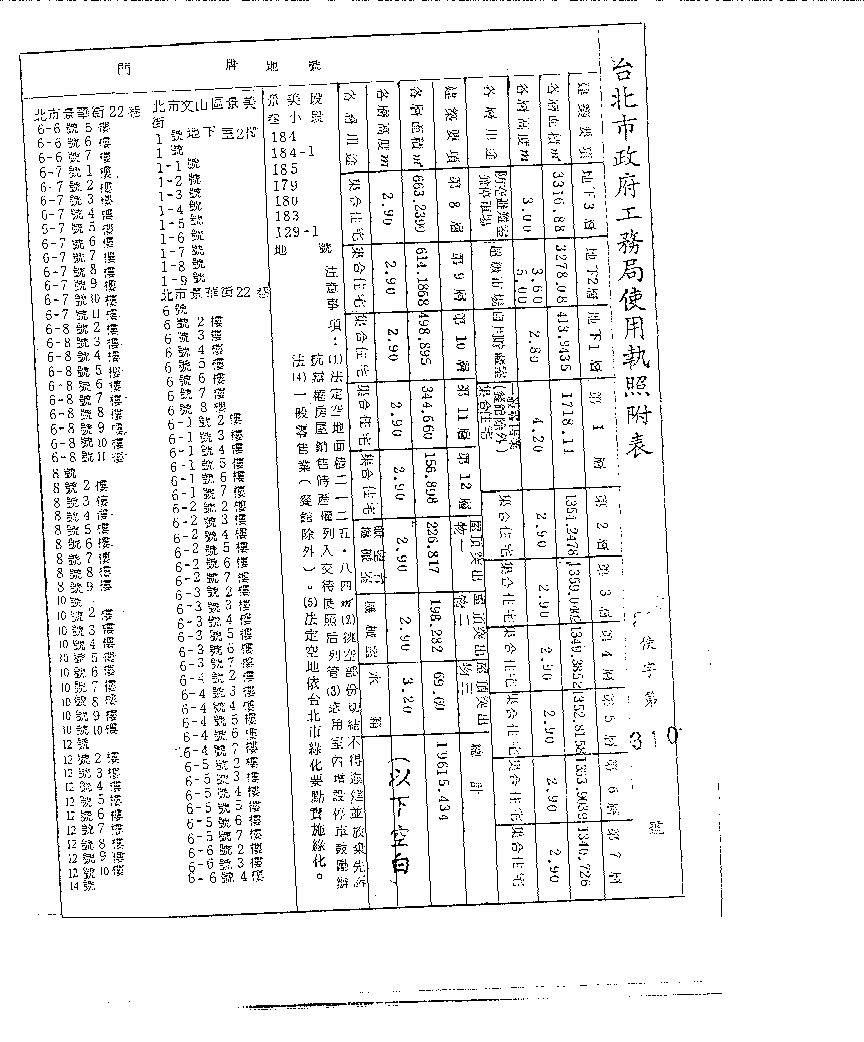 台北市政府工務局使用執照附表
使字第310號
建築要項 地下3層 地下2層 地下1層 第1層 第2層 第3層 第4層 第5層 第6層 第7層
各層面積㎡ 3316.88 3278.08 413.9435 1718.11 1351.2478
各層高度m 3.00 3.60 5.00 2.80 4.20 2.90 2.90 2.90 2.90 2.90 2.90
各層用途 集合住宅 集合住宅 集合住宅 集合住宅 集合住宅 集合住宅 集合住宅
建築要項 第8層 第9層 第10層 第11層 第12層 屋頂突出物一 屋頂突出物二 屋頂突出物三 總計
各層面積㎡ 663.2399 614.1868 498.895 344.660 156.898 226.817 198.282 69.60 19615.434
各層高度m 2.90 2.90 2.90 2.90 2.90 2.90 2.90 3.20 (以下空白)
各層用途 集合住宅 集合住宅 集合住宅 集合住宅 集合住宅 水箱
地號
段小段
184
184-1
185
179
180
183
129-1
地號
注意事項:(1)法定空地面積二一二五.八四㎡(2)挑空部份切結不得違建並放棄先訴
(4)一般零售業(餐館除外)。(5)法定空地依台北市綠化要點實施綠化。
門牌
北市文山區景美街
1號地下室2樓
1號
1-1號
1-2號
1-3號
1-4號
1-5號
1-6號
1-7號
1-8號
1-9號
北市景華街22巷
6號
6號2樓
6號3樓
6號4樓
6號5樓
6號6樓
6號7樓
6號8樓
6-1號2樓
6-1號3樓
6-1號4樓
6-1號5樓
6-1號6樓
6-1號7樓
6-2號2樓
6-2號3樓
6-2號4樓
6-2號5樓
6-2號6樓
6-2號7樓
6-3號2樓
6-3號3樓
6-3號4樓
6-3號5樓
6-3號6樓
6-3號7樓
6-4號2樓
6-4號3樓
6-4號4樓
6-4號5樓
6-4號6樓
6-4號7樓
6-5號2樓
6-5號3樓
6-5號4樓
6-5號5樓
6-5號6樓
6-5號7樓
6-6號2樓
6-6號3樓
6-6號4樓
北市景華街22巷
6-6號5樓
6-6號6樓
6-6號7樓
6-7號1樓
6-7號2樓
6-7號3樓
6-7號4樓
6-7號5樓
6-7號6樓
6-7號7樓
6-7號8樓
6-7號9樓
6-7號10樓
6-7號11樓
6-8號2樓
6-8號3樓
6-8號4樓
6-8號5樓
6-8號6樓
6-8號7樓
6-8號8樓
6-8號9樓
6-8號10樓
6-8號11樓
8號
8號2樓
8號3樓
8號4樓
8號5樓
8號6樓
8號7樓
8號8樓
8號9樓
10號
10號2樓
10號3樓
10號4樓
10號5樓
10號6樓
10號7樓
10號8樓
10號9樓
10號10樓
12號
12號2樓
12號3樓
12號4樓
12號5樓
12號6樓
12號7樓
12號8樓
12號9樓
12號10樓
14號